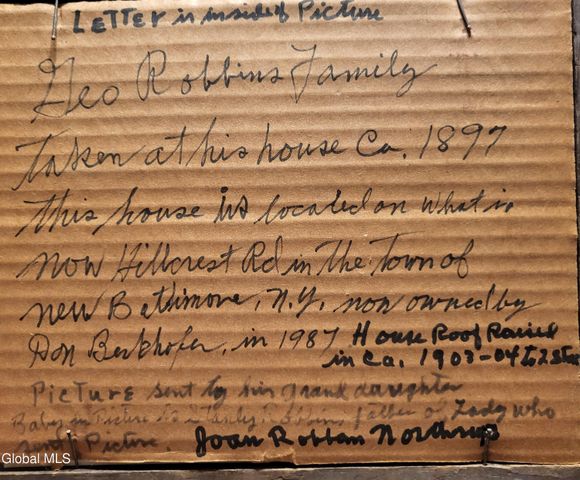 LETTER is inside of Picture
Geo Robbins Family
taken at his house Ca. 1897
this house is located on what is
now Hillcrest Rd in the Town of
new Baltimore, N.Y. now owned by
Don Berkhofer, in 1987 House Roof Raised
in Ca. 1903-04 to 2 Stories
Picture sent by his grand daughter
Baby in Picture is Stanley Robbins, father of Lady who
sent Picture. Joan Robbins Northrup
Global MLS